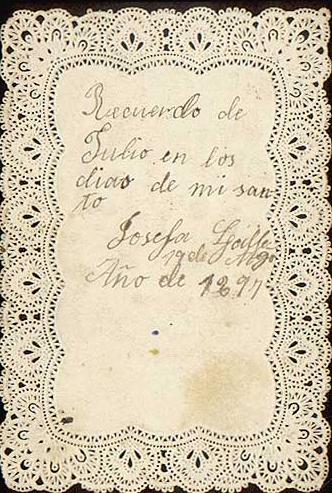 Recuerdo de
Julio en los
dias de mi san
to
Josefa
19 de
Año de 1897